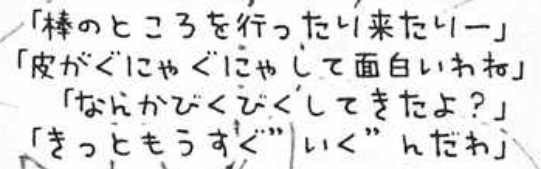 「棒のところを行ったり来たりー」
「皮がぐにゃぐにゃして面白いわね」
「なんかびくびくしてきたよ？」
「きっともうすぐ”いく”んだわ」